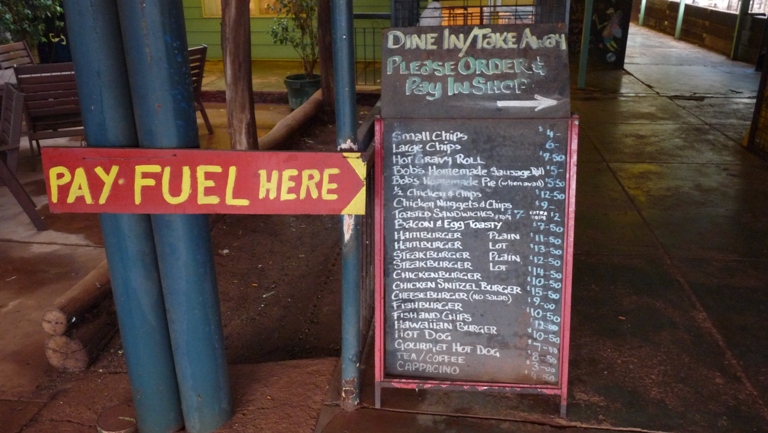 PAY FUEL HERE
DINE IN/TAKE AWAY
PLEASE ORDER &
PAY IN SHOP
SMALL CHIPS $4-
LARGE CHIPS 6-
HOT GRAVY ROLL $7-50
BOB'S HOMEMADE SAUSAGE ROLL $5-
BOB'S HOMEMADE PIE (when avail) $5-50
½ CHICKEN & CHIPS $12-50
CHICKEN NUGGETS & CHIPS $9-
TOASTED SANDWICHES FROM $7- EXTRA $2
BACON & EGG TOASTY $7-50
HAMBURGER PLAIN $11-50
HAMBURGER LOT $13-50
STEAKBURGER PLAIN $12-50
STEAKBURGER LOT $14-50
CHICKENBURGER $10-50
CHICKEN SNITZEL BURGER $15-50
CHEESEBURGER (NO SALAD) $9-00
FISHBURGER $10-50
FISH AND CHIPS $12-00
HAWAIIAN BURGER $10-50
HOT DOG
GOURMET HOT DOG 8-50
TEA/COFFEE 3-00
CAPPACINO